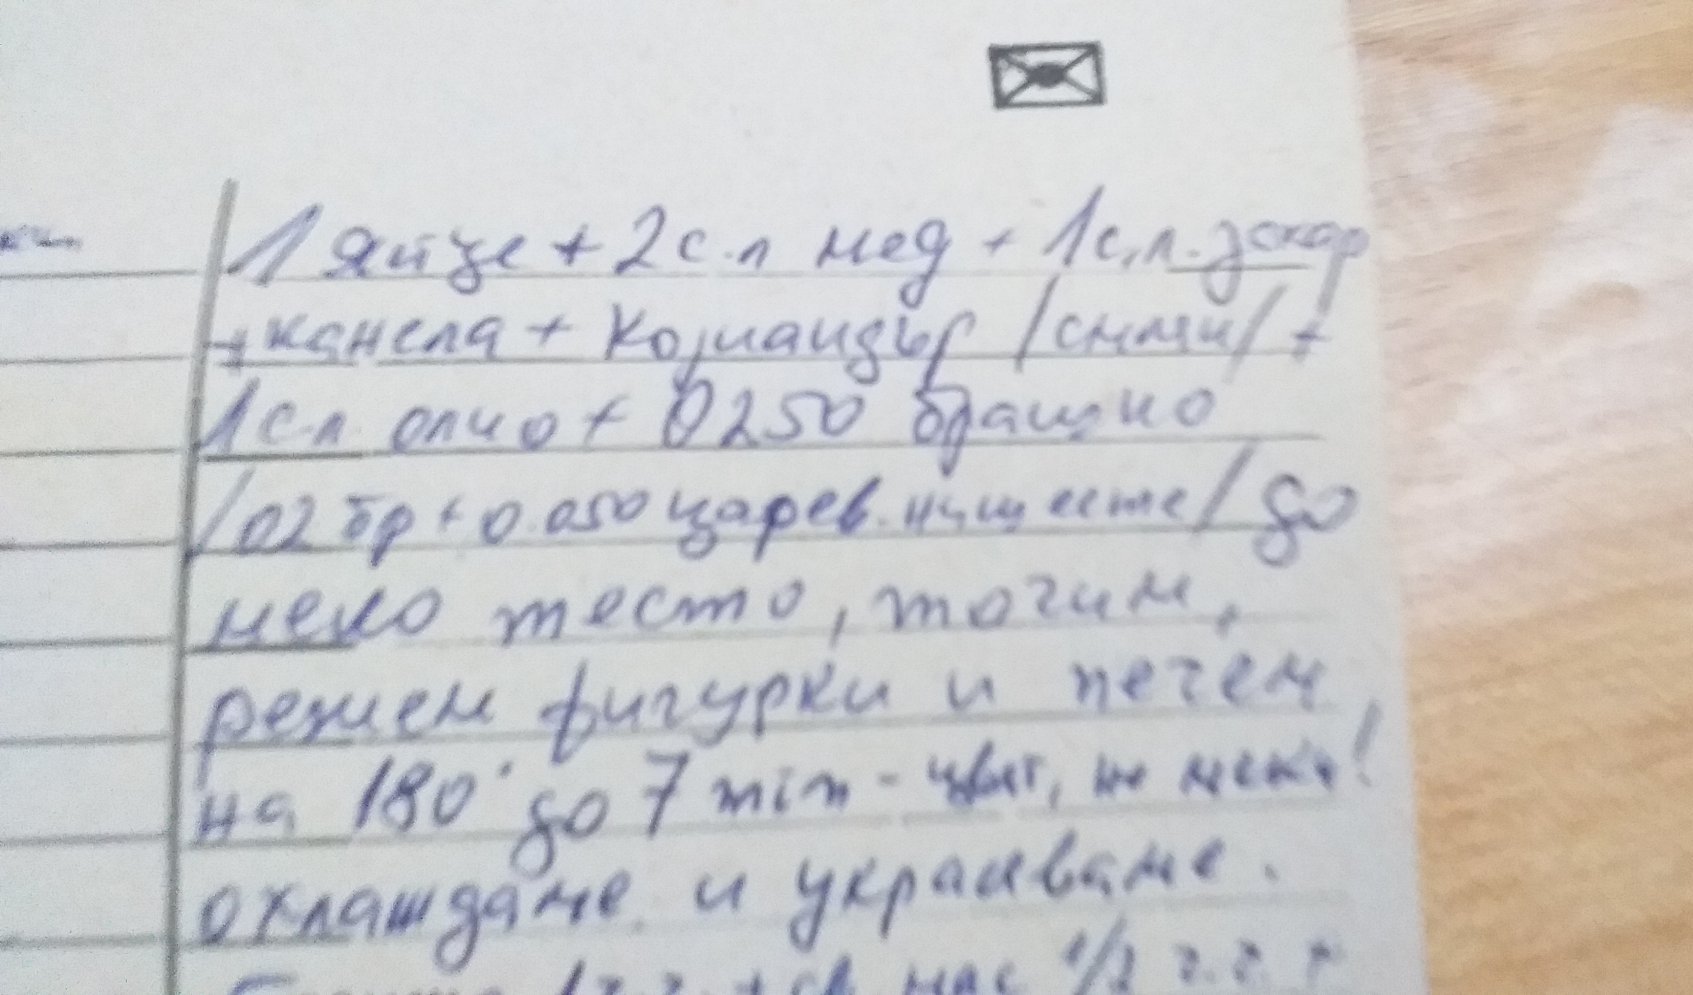 1 яйце + 2 с.л мед + 1 с.л. захар
+ канела + Кориандър /смлян/ +
1 с.л. олио + 0250 брашно
/02 бр + 0.050 царев. нишесте/ до
меко тесто, точим,
режем фигурки и печем
на 180° до 7 min - цвят, не мека!
охлаждаме и украсяваме.
+ св мас 1/2 ч.ч. +